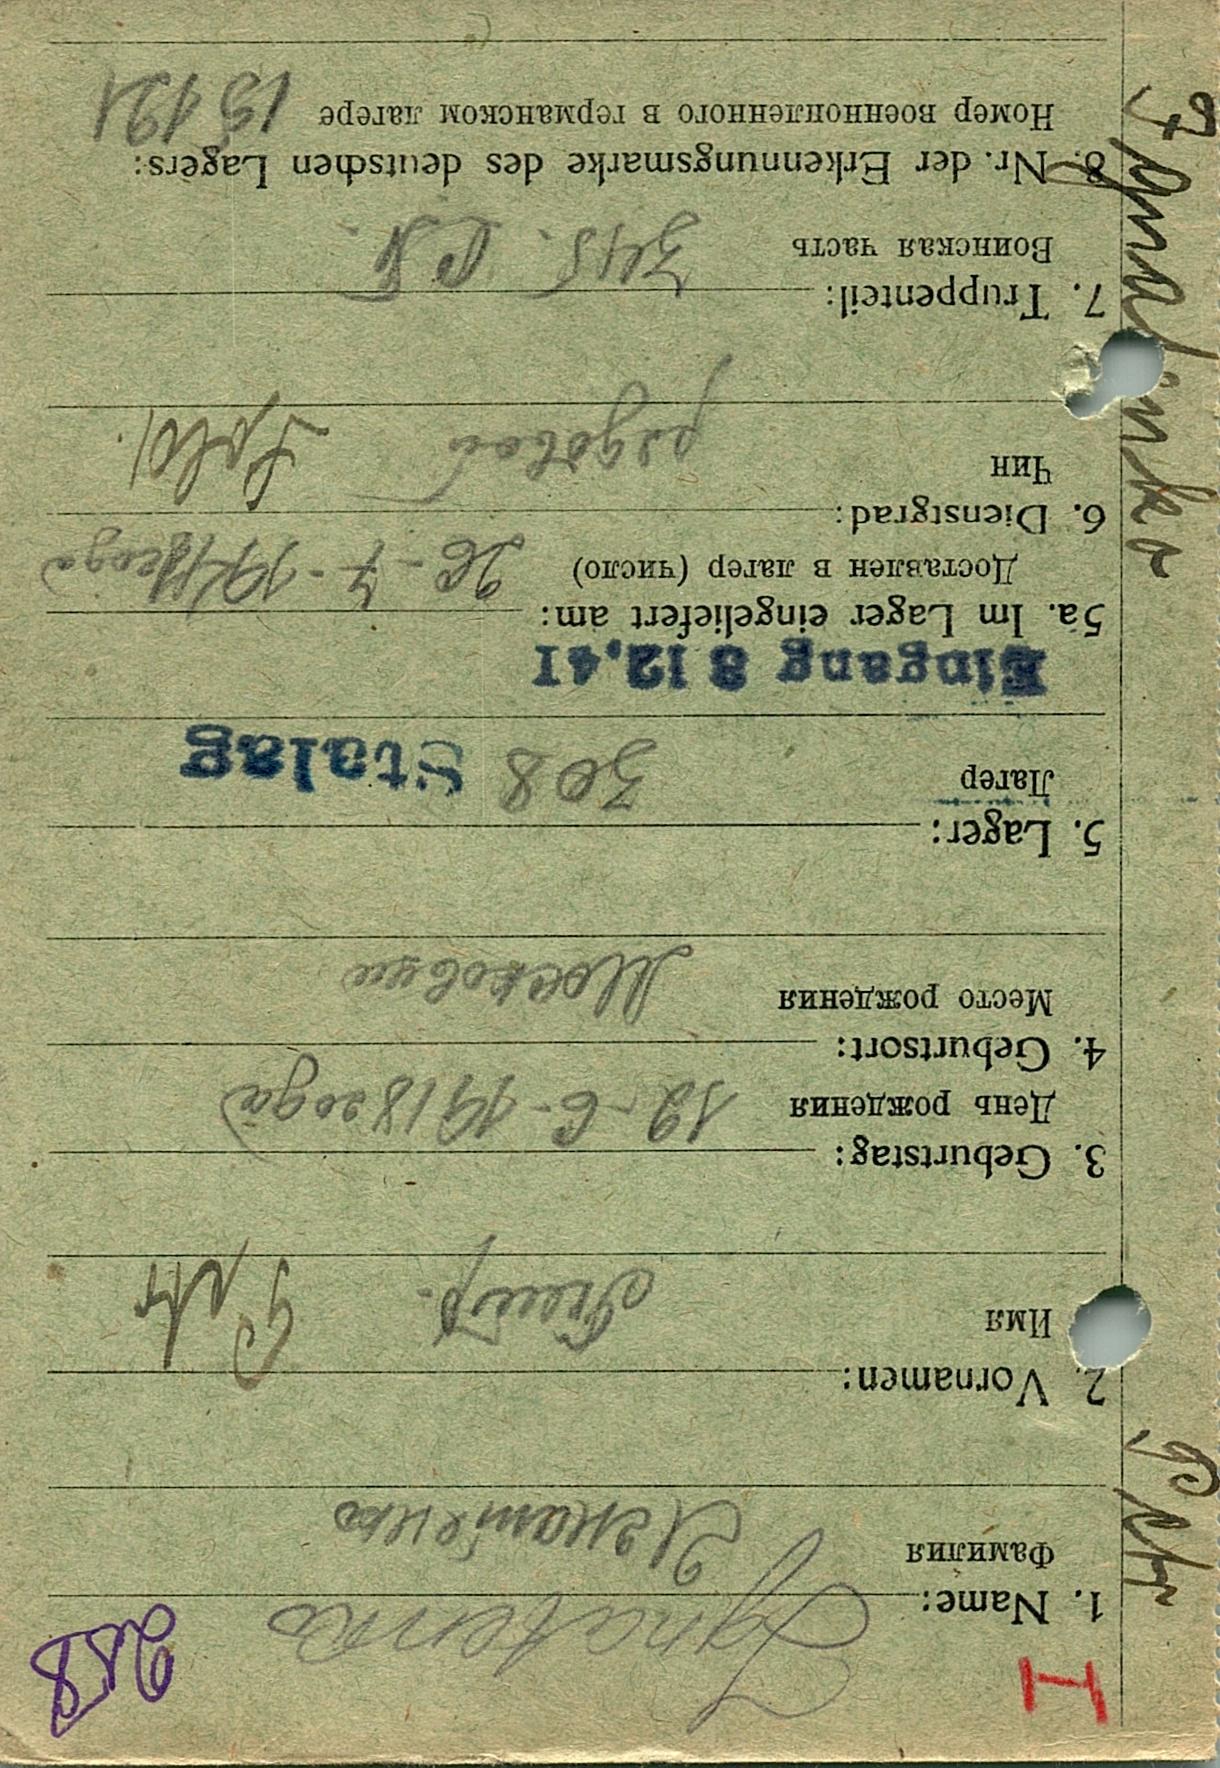 I
258
1. Name: Ignatenko
Фамилия Игнатенко
2. Vornamen:
Имя Пётр. Petr
3. Geburtstag:
День рождения 12-6-1918 года
4. Geburtsort:
Место рождения
5. Lager:
Лагер 308 Stalag
Eingang 8 12.41
5a. Im Lager eingeliefert am:
Доставлен в лагер (число) 26-7-1941 года
6. Dienstgrad:
Чин рядовой Sold.
7. Truppenteil:
Воинская часть 345. С П.
8. Nr. der Erkennungsmarke des deutschen Lagers:
Номер военнопленного в германском лагере 15121
Ignatenko
Petr